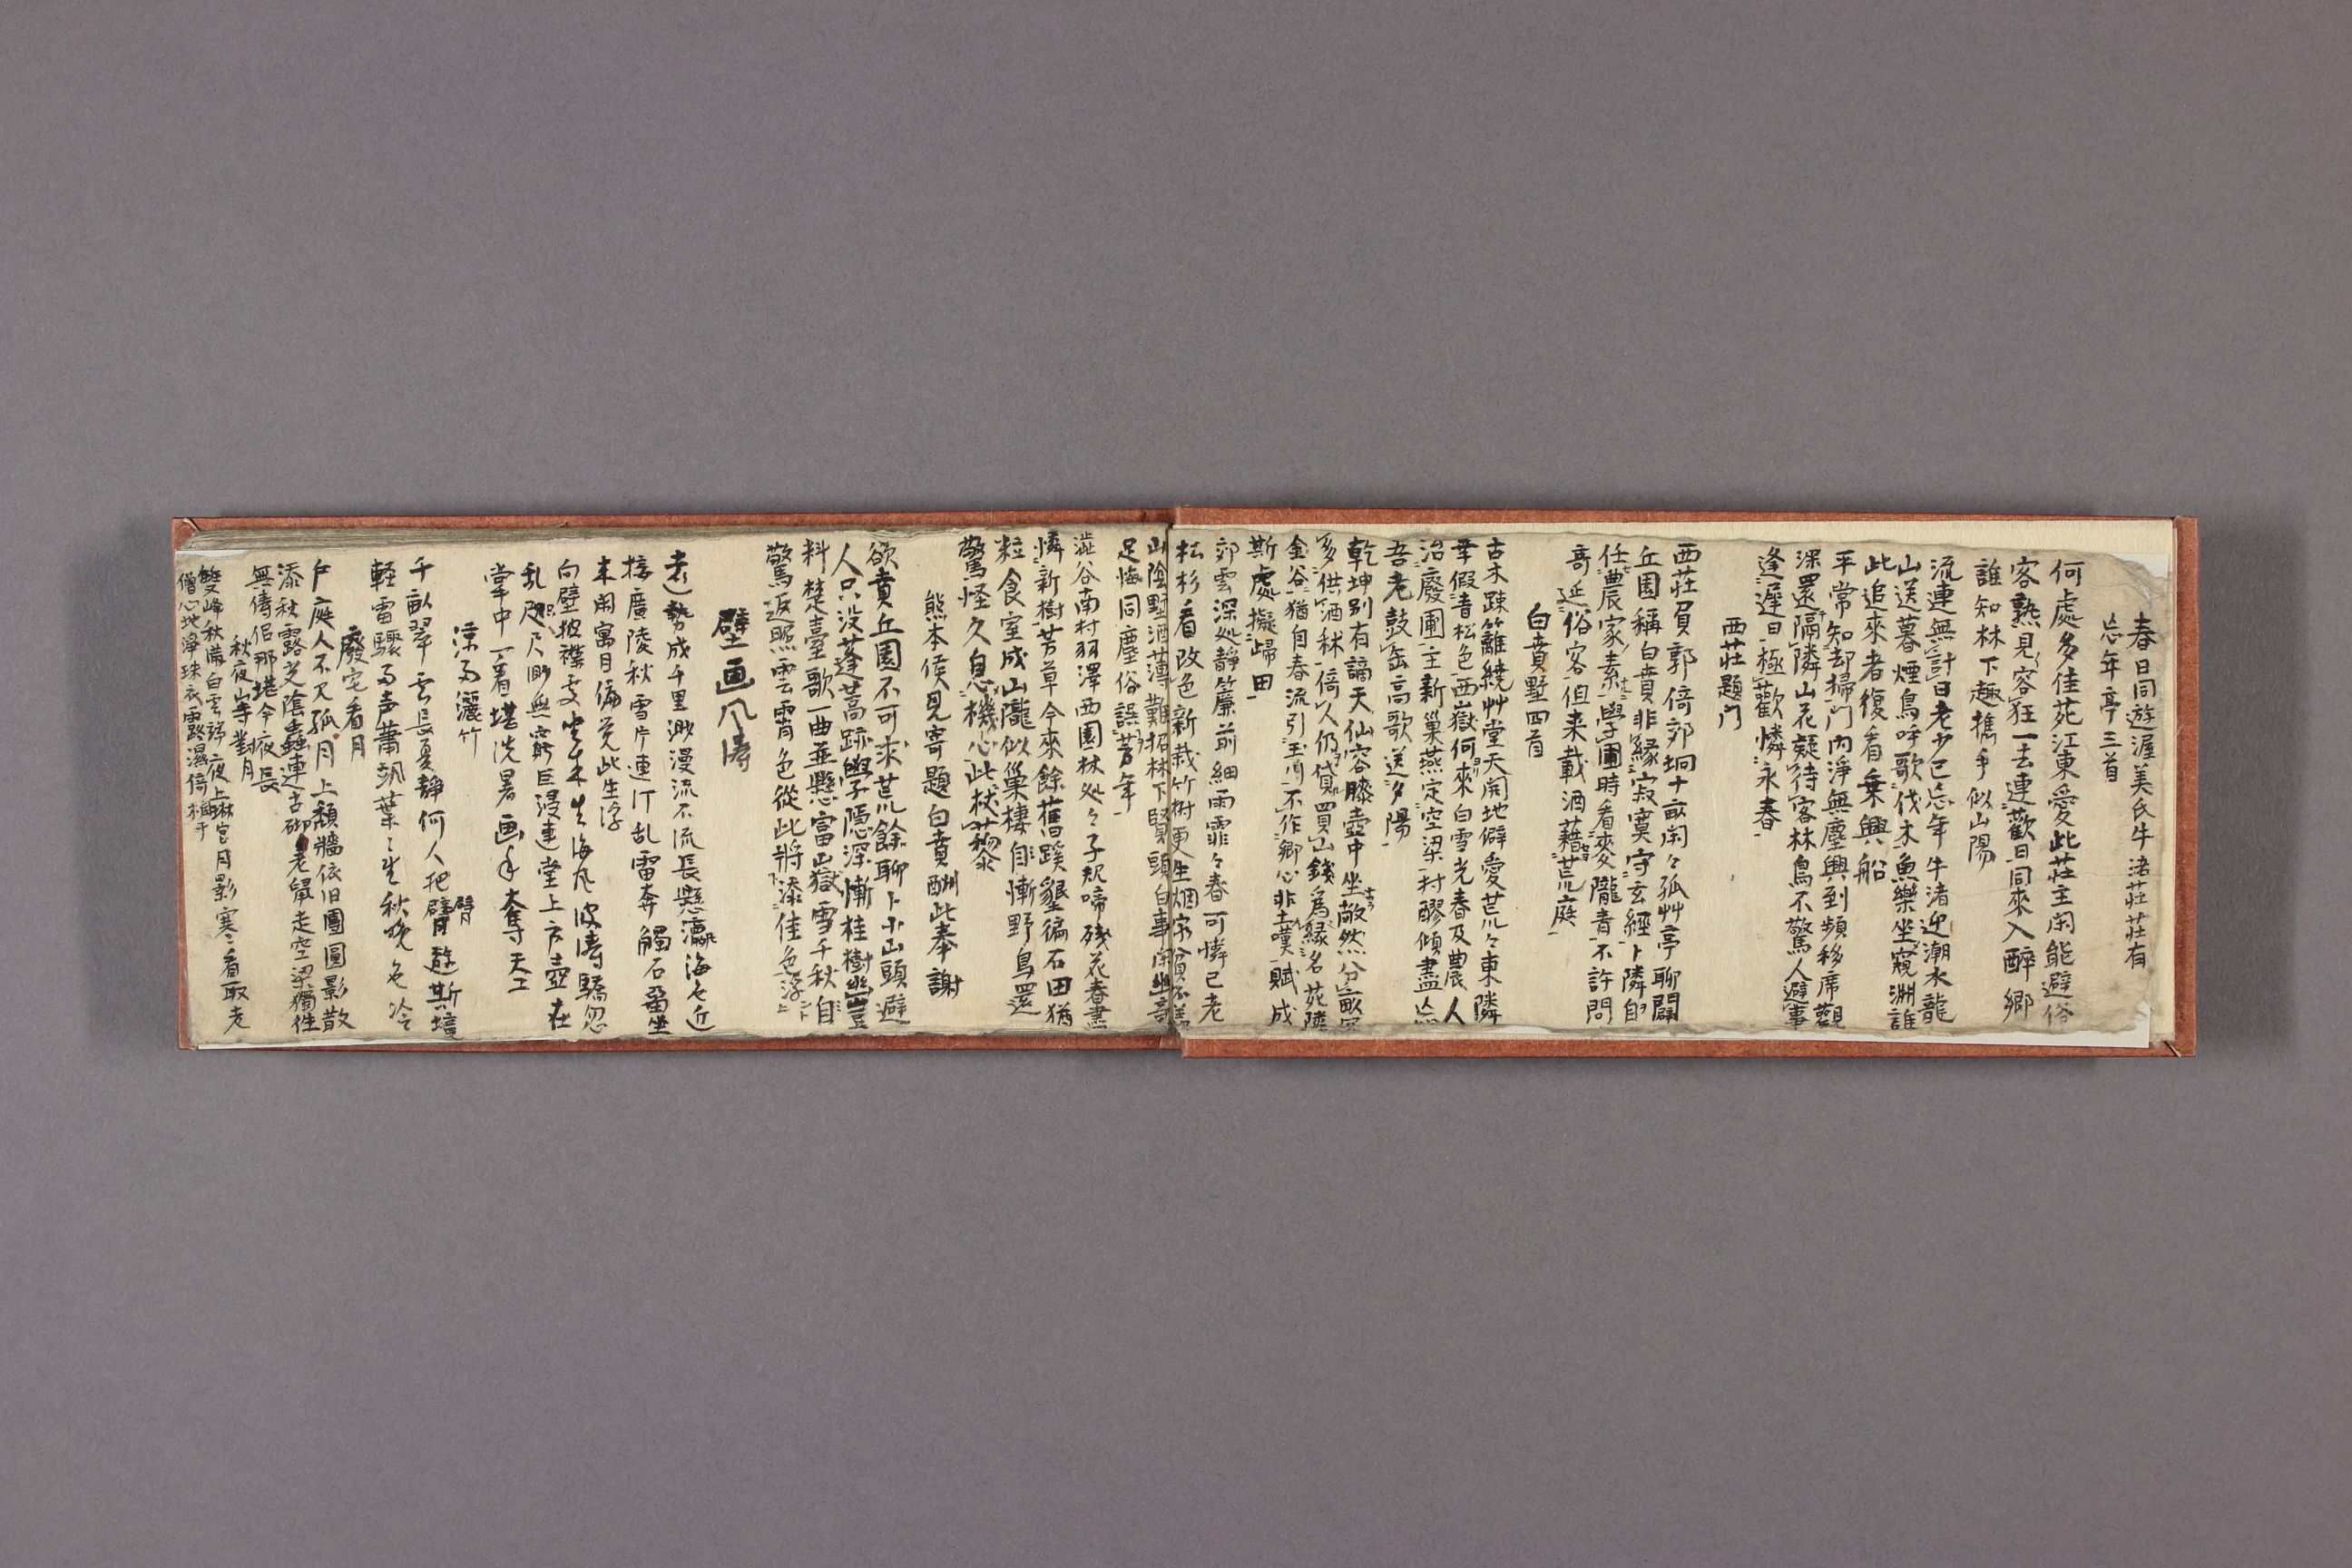 春日同遊渥美氏牛渚荘荘有
忘年亭三首
何處多佳苑江東愛此荘主閑能避俗
客熟見容狂一去連歡日同來入醉郷
誰知林下趣攜手似山陽
流連無計日老少已忘年牛渚迎潮水龍
山送暮煙鳥呼歌伐木魚樂坐窺淵誰
此追來者復看乗興船
平常知却掃門内淨無塵興到頻移席觀
深還隔隣山花凝待客林鳥不驚人避事
逢遲日極歡憐永春
西荘題門
西荘負郭倚郊坰十畝閑々孤艸亭聊闢
丘園稱白賁非縁寂寞守玄經卜隣自
任農家素學圃時看夌隴青不許問
奇延俗客但来載酒藉荒庭
白賁墅四首
古木踈籬繞艸堂天開地僻愛荒々東隣
幸假青松色西嶽何來白雪光春及農人
治廢圃主新巢燕定空梁村醪傾盡
吾老鼓缶高歌送夕陽
乾坤別有謫天仙容膝壺中坐敞然分畝
多供酒秫倚人仍貸買山錢為縁名苑隣
金谷猶自春流引玉川不作郷心非土嘆賦成
斯處擬歸田
郊雲深処靜簾前細雨霏々春可憐已老
松杉看改色新栽竹樹更生烟
山陰墅酒薄難招林下賢頭白事
足悔同塵俗誤芳年
澁谷南村羽澤西園林処々子規啼殘花春盡
憐新樹芳草今來餘舊蹊墾徧石田猶
粒食室成山隴似巢棲自慚野鳥還
驚怪久息機心此杖藜
熊本侯見寄題白賁酬此奉謝
欲賁丘園不可求荒餘聊卜小山頭避
人只没蓬蒿跡學隱深慚桂樹幽豈
料楚臺歌一曲並懸富嶽雪千秋自
驚返照雲霄色從此將添佳色浮
壁画風濤
素勢成千里渺漫流不流長懸瀛海色近
接廣陵秋雪片連汀乱雷奔觸石畱坐
来閑寓目偏覚此生浮
向壁披襟處坐来生海風波濤驕忽
乱咫尺眇無窮巨浸連堂上方壺在
掌中一看堪洗暑画手奪天工
涼雨灑竹
千畝翠雲長夏靜何人把臂遊斯境
軽雷驟雨声蕭颯葉々生秋晩色冷
廢宅看月
戸庭人不見孤月上頽牆依旧團圓影散
添秋露芝陰蟲連古砌老鼠走空梁獨徃
無儔侶那堪今夜長
秋夜山寺對月
雙峰秋満白雲歸夜上琳宮月影寒看取老
僧心地淨珠衣露濕倚欄干